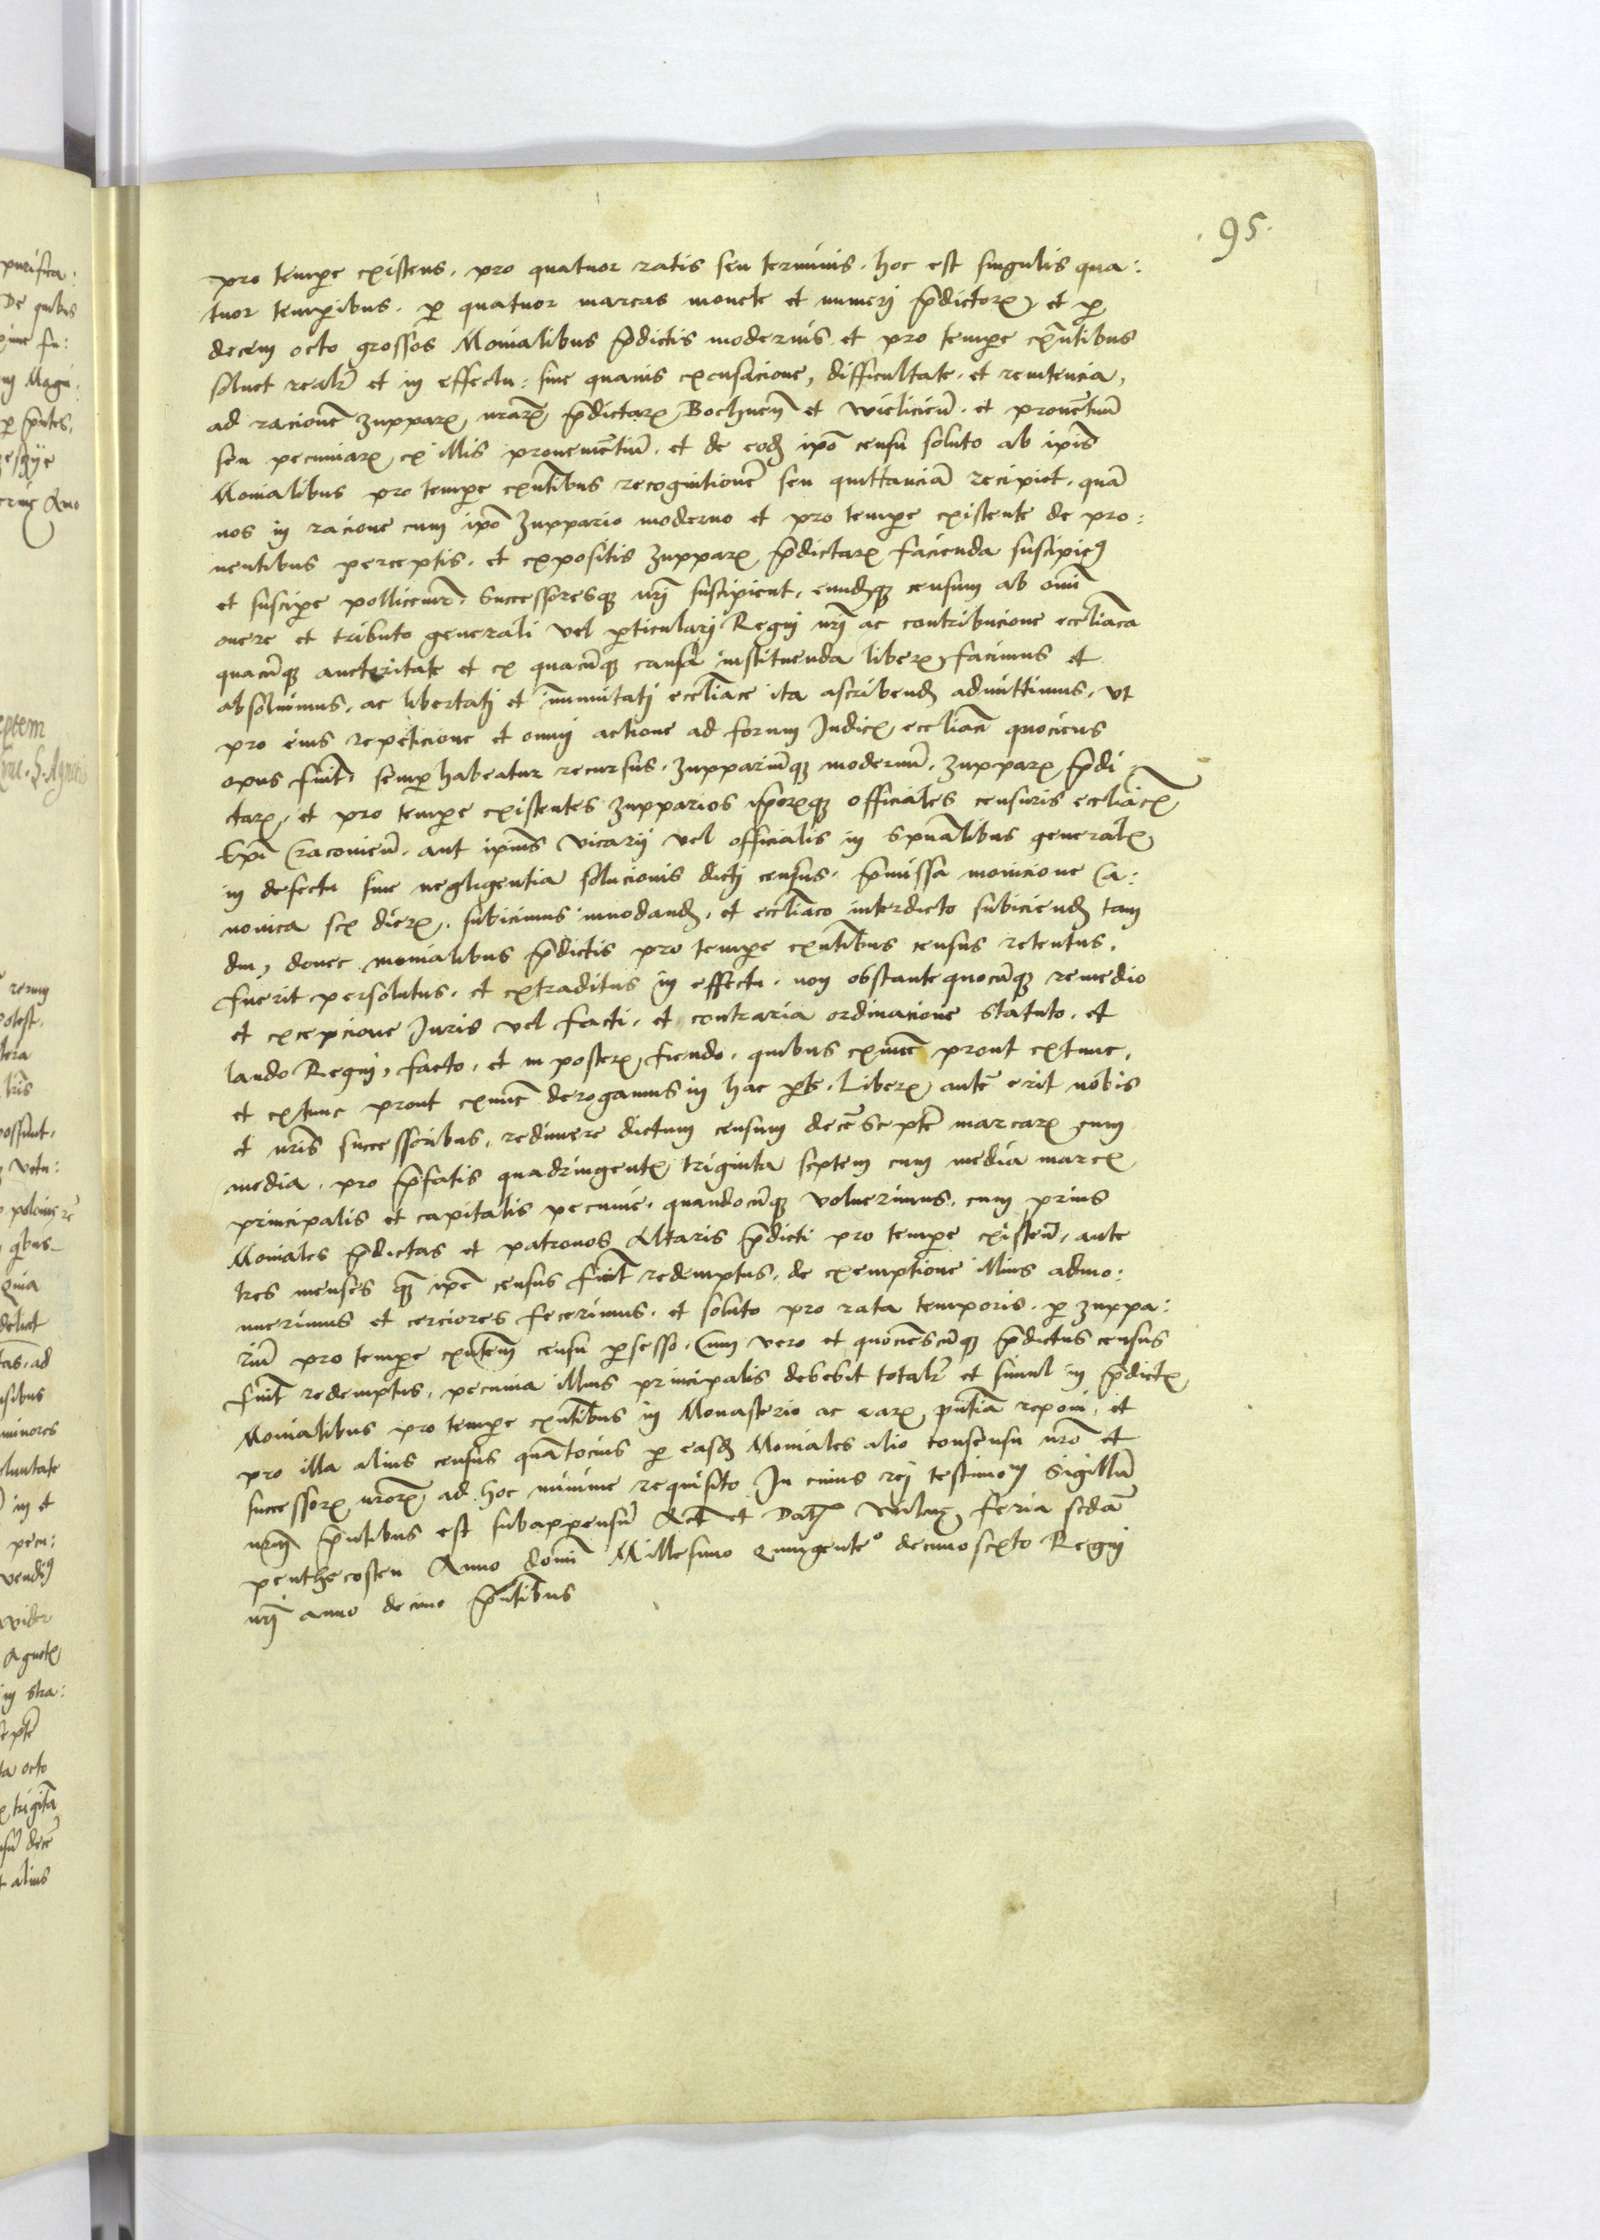 95
pro tempe existens, pro quatuor ratis seu terminis, hoc est singulis qua:
tuor tempibus, p quatuor marcas monete et numeri pdictoꝝ, et p
decem octo grossos Monialibus pdictis modernis et pro tempe exntibus
soluet realr et in effectu: sine quauis excusacione, difficultate, et renitencia,
ad racione zuppaꝝ nraꝝ pdictaꝝ Bochnen et Wieliciens, et prouetuu
seu pecuniaꝝ ex illis prouenietiu, et de eodꝫ ipo censu soluto ab ipis
Monialibus pro tempe exntibus recognitione seu quittancia recipiet, qua
nos in racione cum ipo zuppario moderno et pro tempe existente de pro:
uentibus perceptis, et expositis zuppaꝝ pdictaꝝ facienda suscipiem9
et suscipe pollicemr, Successoresqꝫ nri suscipient, eundqꝫ censum ab omi
onere et tributo generali vel pticulari Regni nri ac contribucione eccliaca
quacuqꝫ auctoritate et ex quacuqꝫ causa instituenda liberꝝ facimus et
absoluimus, ac libertati et immuitati eccliace ita ascribendꝫ admittimus, vt
pro eius repeticione et omni actione ad forum Judicꝝ eccliacu quociens
opus fuit, semp habeatur recursus, zuppariuqꝫ modernu, zuppaꝝ pdi:
ctaꝝ, et pro tempe existentes zupparios ipoꝝqꝫ officiales censuris eccliacꝝ
Epi Cracouien, aut ipius vicarij vel officialis in spualibus generalꝝ
in defectu siue negligentia solucionis dicti census, pmissa monicione Ca:
nonica sex dierꝝ, subicimus innodandꝫ, et eccliaco interdicto subiciendꝫ tam
diu, donec monialibus pdictis pro tempe exntibus census retentus,
fuerit persolutus, et extraditus in effectu, non obstante quocuqꝫ remedio
et excepcione Juris vel facti, et contraria ordinacione statuto, et
laudo Regni, facto, et in posterꝝ fiendo, quibus exnuc prout extunc,
et extunc prout exnuc derogamus in hac pte. Liberꝝ aute erit nobis
et nris successoribus, redimere dictum censum dece septe marcaꝝ cum
media, pro pfatis quadringentꝝ triginta septem cum media marcꝝ
principalis et capitalis pecunie, quandocuqꝫ voluerimus, cum prius
Moniales pdictas et patronos Altaris pdicti pro tempe existen, ante
tres menses qꝫ ipe census fuit redemptus, de exemptione illius admo:
nuerimus et cerciores fecerimus, et soluto pro rata temporis, p zuppa:
riu pro tempe exntem censu psesso. Cum vero et quociescuqꝫ pdictus census
fuit redemptus, pecunia illius principalis debebit totalr et simul in pdictꝝ
Monialibus pro tempe exntibus in Monasterio ac eaꝝ pntia reponi, et
pro illa alius census quatocius p easdꝫ Moniales alio consensu nro et
successoꝝ nroꝝ ad hoc minime requisito. In cuius rei testimon Sigillu
nrm pntibus est subappensu Act et Dat Vilne feria scda
penthecosten Anno domi Millesimo quingente° decimosexto Regni
nri anno decimo pntibus